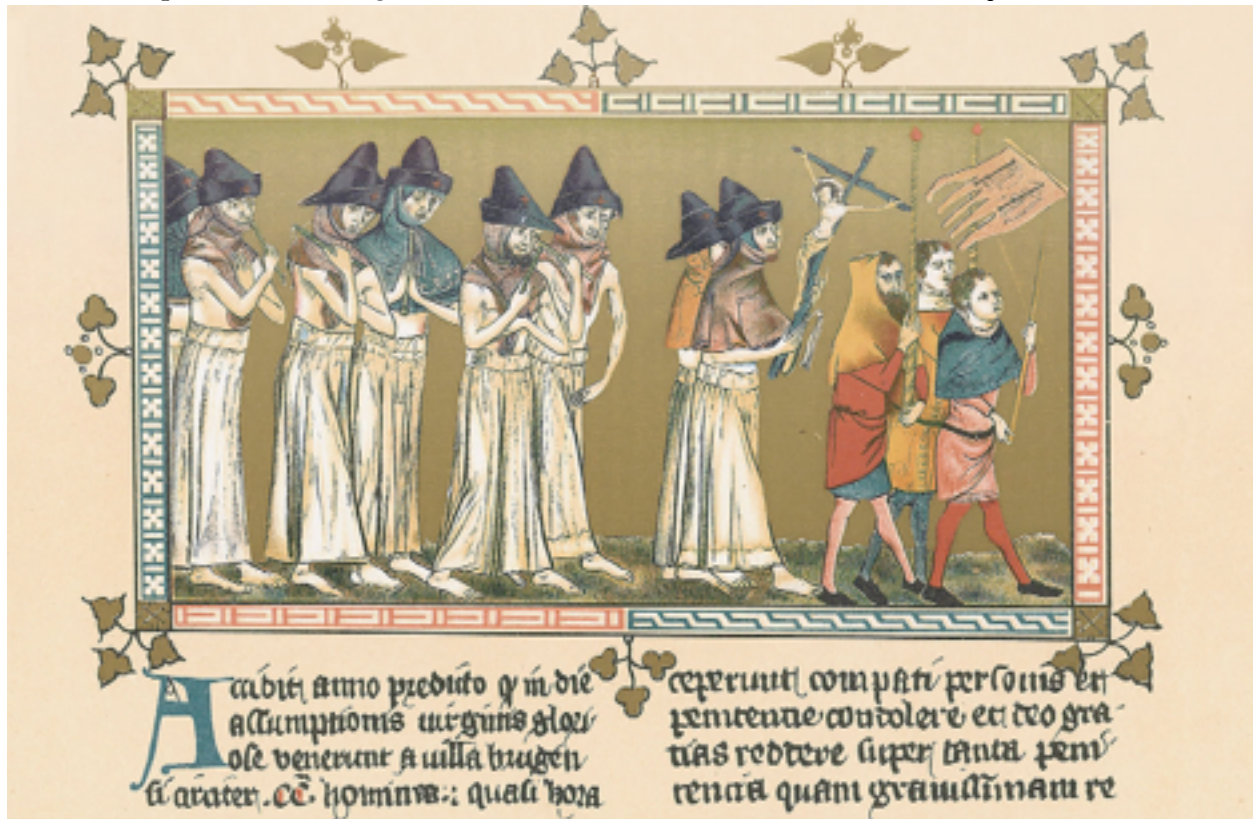 Accidit anno predicto q in die
assumptionis uirginis glori
ose venerunt a uilla brugen
si circiter .CC. homines: quasi hora
ceperunt compati personis et
penitentie condolere et deo gra-
tias reddere super tanta peni-
tencia quam grauissimam re